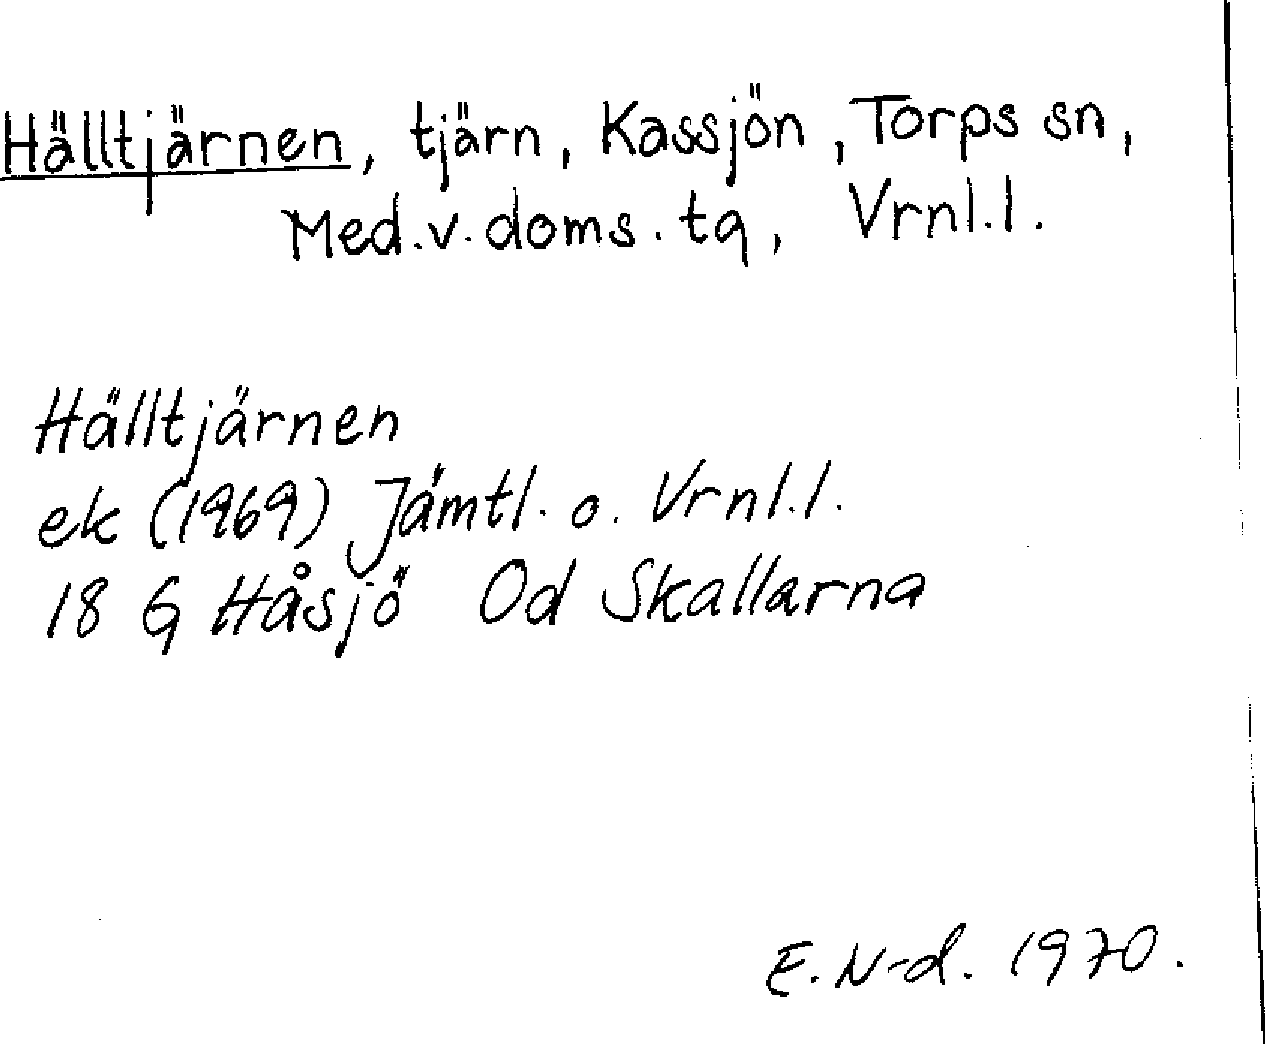 Hälltjärnen, tjärn, Kassjön, Torps sn,
Med.v.doms.tq, Vrnl.l.
Hälltjärnen
ek (1969) Jämtl. o. Vrnl.l.
18 G Håsjö Od Skallarna
E.N-d. 1970.